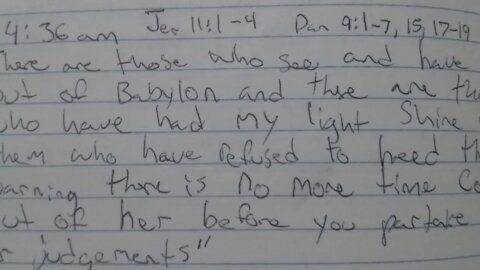 4:36am Jer 11:1-4 Dan 9:1-7, 15, 17-19
here are those who see and have
out of Babylon and these are th
who have had my light Shine
them who have refused to heed th
arning there is no more time Co
ut of her before you partake
r judgements"